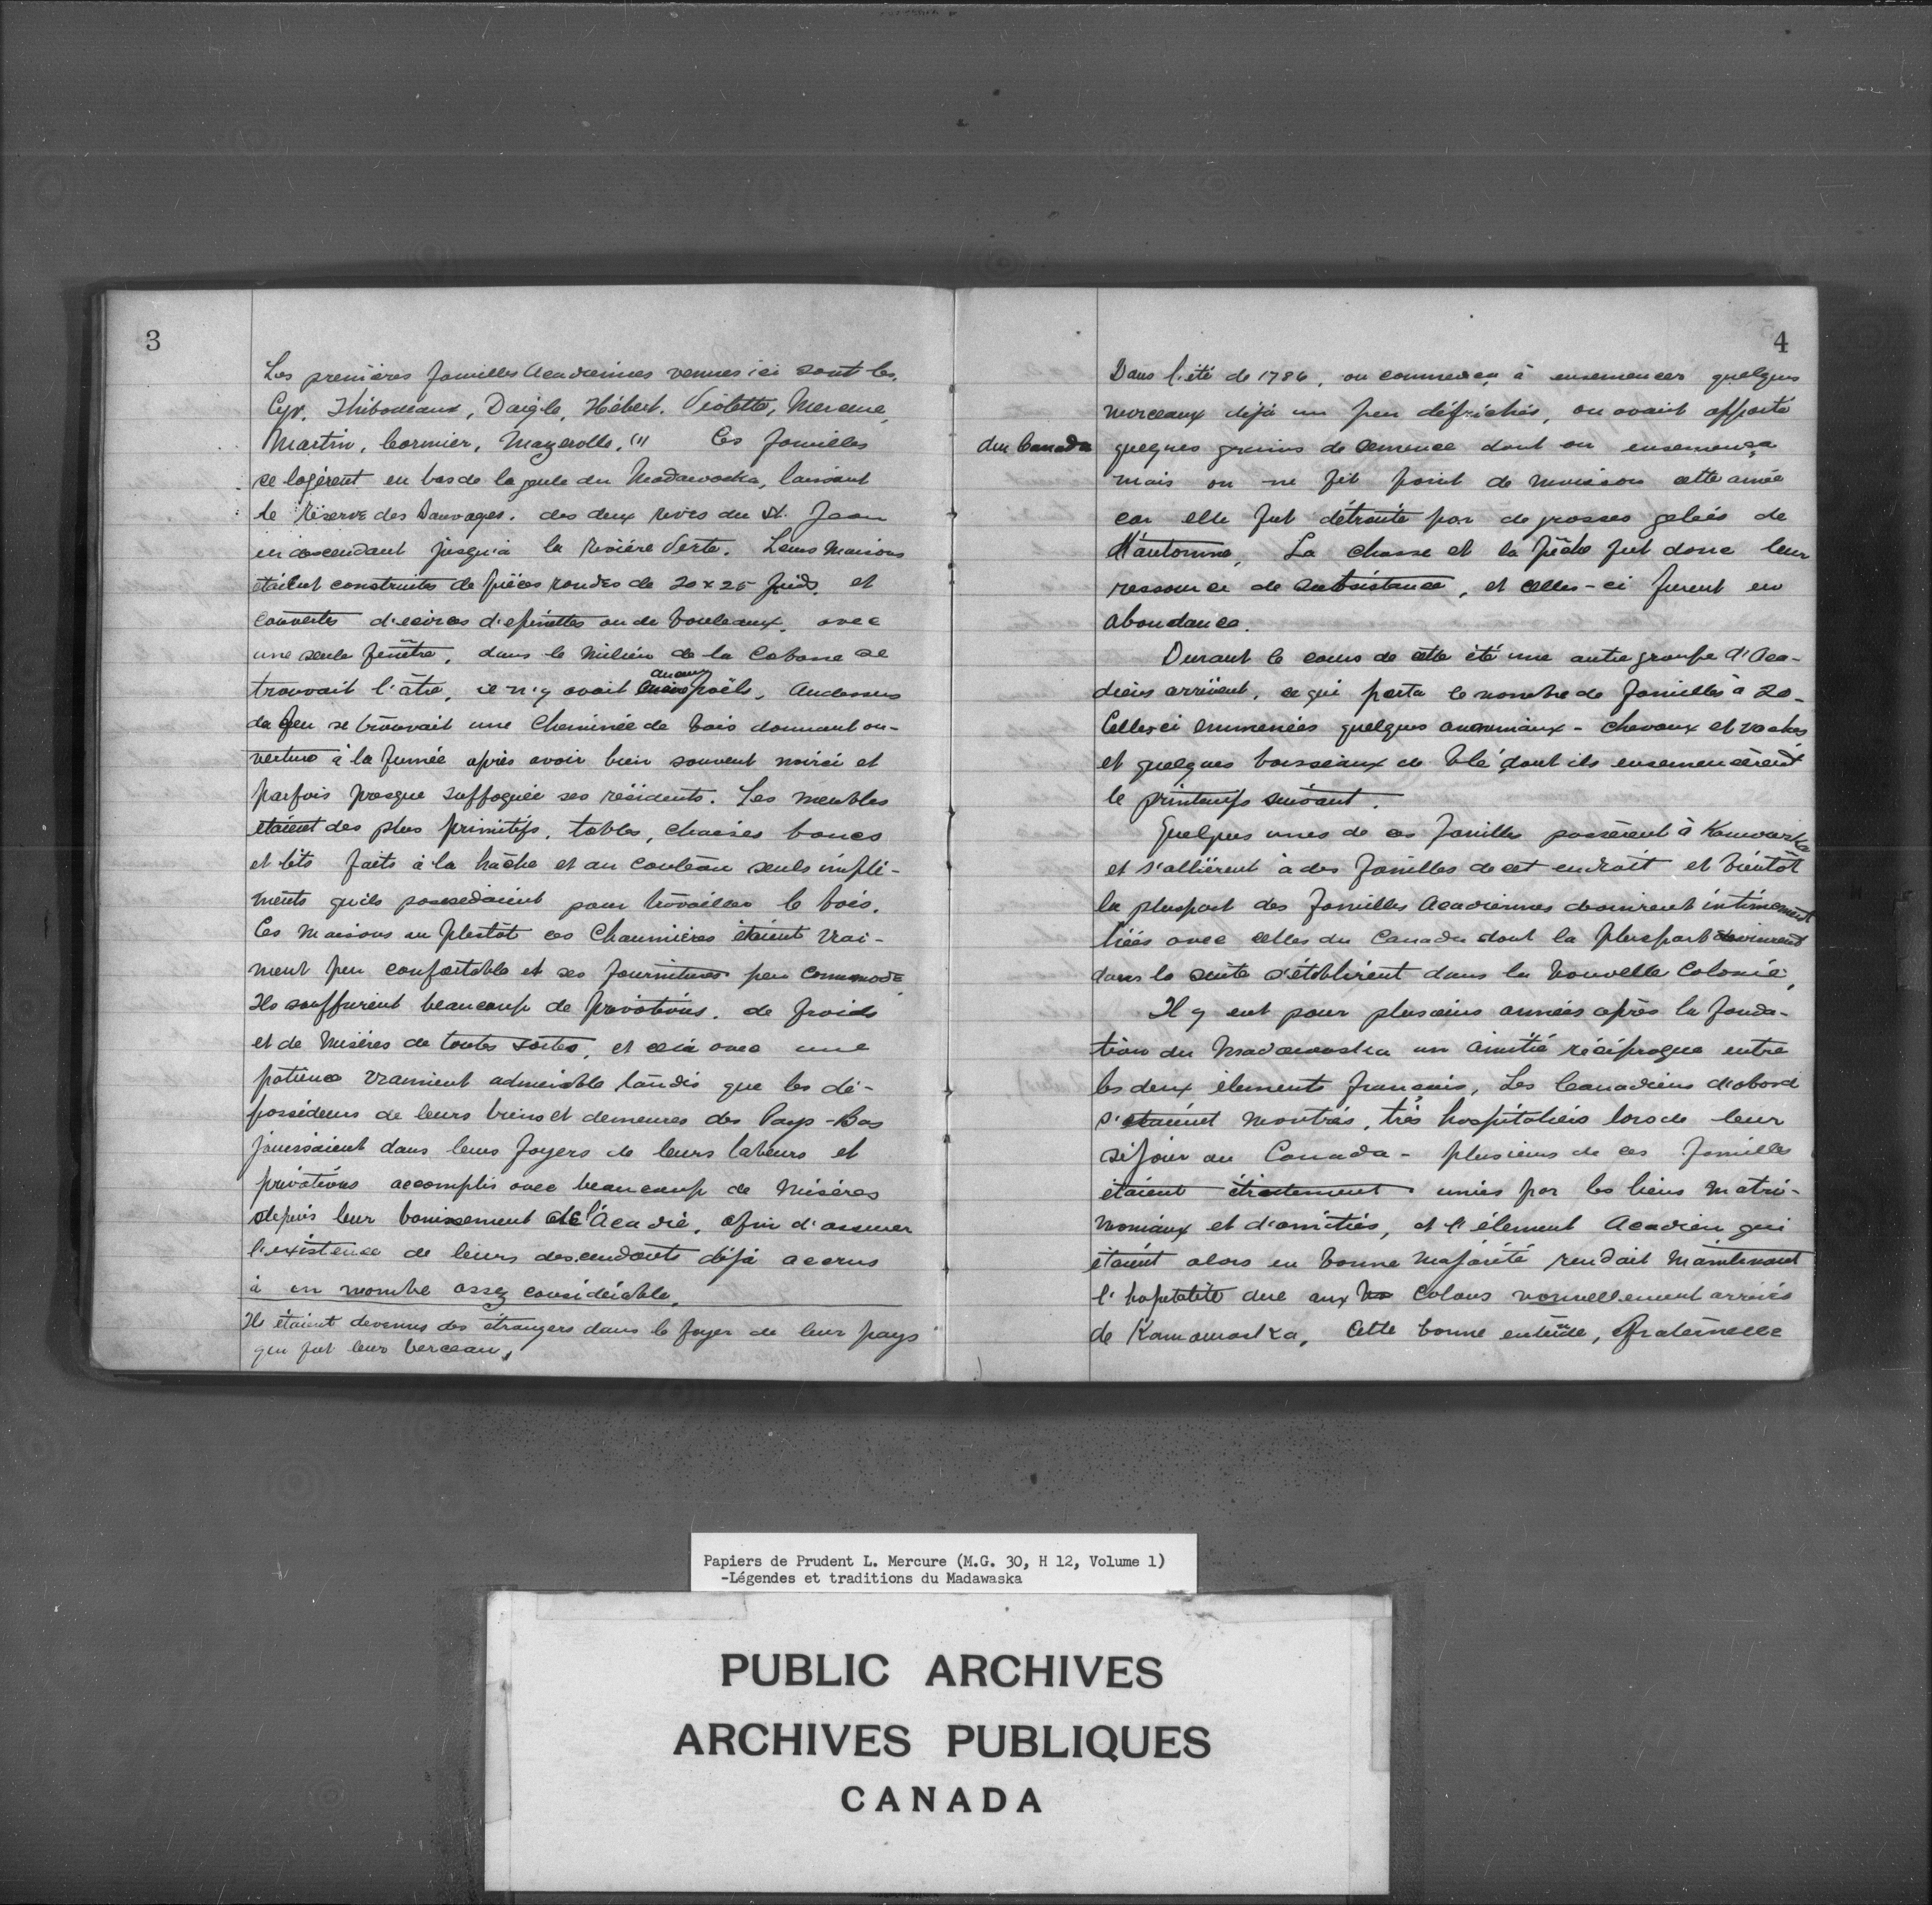 3
Les premières familles Acadiennes venues ici sont les
Cyr, Thibodeaux, Daigle, Hébert, Violette, Mercure,
Martin, Cormier, Mazerolle. (1) Ces familles
se logèrent en bas de la geule du Madawaska, laissant
le Réserve des Sauvages. des deux rives du St. Jean
en descendant jusqu'à la rivière Verte. Leurs Maisons
étaient construites de pièces rondes de 20 x 25 pieds, et
couvertes d'écorces d'épinettes ou de bouleaux, avec
une seule fenêtre, dans le milieu de la Cabane se
trouvait l'âtre, ce n'y avait aucun poêle, Audessus
de feu se trouvait une Cheminée de bois donnant ou-
verture à la fumée après avoir bien souvent noirci et
parfois presque suffoquée ses résidents. Les meubles
étaient des plus primitifs, tables, chaises bancs
et lits faits à la hâche et au couteau seuls impli-
ments qu'ils possedaient pour travailler le bois.
Ces maisons ou plustôt ces Chaumières étaient vrai-
ment peu confortable et ses fournitures peu commode
Ils souffrirent beaucoup de privations, de froids
et de Misères de toutes sortes, et cela avec une
patience vraiment admirable tandis que les dé-
posséders de leurs biens et demeures des Pays-Bas
jouissaient dans leurs foyers de leurs labeurs et
privations accomplis avec beaucoup de Misères
depuis leur banissement de l'Acadie, afin d'assurer
l'existence de leurs descendants déjà accrus
à un nombre assez considérable.
Ils étaient devenus des étrangers dans le foyer de leur pays
qui fut leur berceau,
4
Dans l'été de 1786, on commença à ensemencer quelques
morceaux déjà un peu défrichés, on avait apporté
du Canada quelques grains de semence dont on ensemença
mais on ne fit point de moisson cette année
car elle fut détruite par de grosses gelées de
l'automne, La chasse et la pêche fut donc leur
ressource de subsistance, et celles-ci furent en
abondance.
Durant le cours de cette été une autre groupe d'Aca-
diens arrivent, ce qui porta le nombre de familles à 20-
Celles ci emmenées quelques animaux - chevaux et vaches
et quelques boisseaux de blé dont ils ensemencèrent
le printemps suivant.
Quelques unes de ces familles passèrent à Kamouraska
et s'allièrent à des familles de cet endroit et bientôt
la pluspart des familles Acadiennes devinrent intimement
liées avec celles du Canada dont la pluspart devinrent
dans la suite s'établirent dans la nouvelle Colonie,
Il y eut pour plusieurs années après la fonda-
tion du Madawaska un amitié réciproque entre
les deux élements français, Les Canadiens d'abord
s'étaient montrés, très hospitaliers lors de leur
séjour au Canada - plusieurs de ces familles
étaient étroitement unies par les liens matri-
moniaux et d'amitiés, et l'élement Acadien qui
étaient alors en bonne majorité rendait maintenant
l'hopitalité due aux Colons nouvellement arrivés
de Kamouraska, Cette bonne entende, fraternelle
Papiers de Prudent L. Mercure (M.G. 30, H 12, Volume 1)
-Légendes et traditions du Madawaska
PUBLIC ARCHIVES
ARCHIVES PUBLIQUES
CANADA